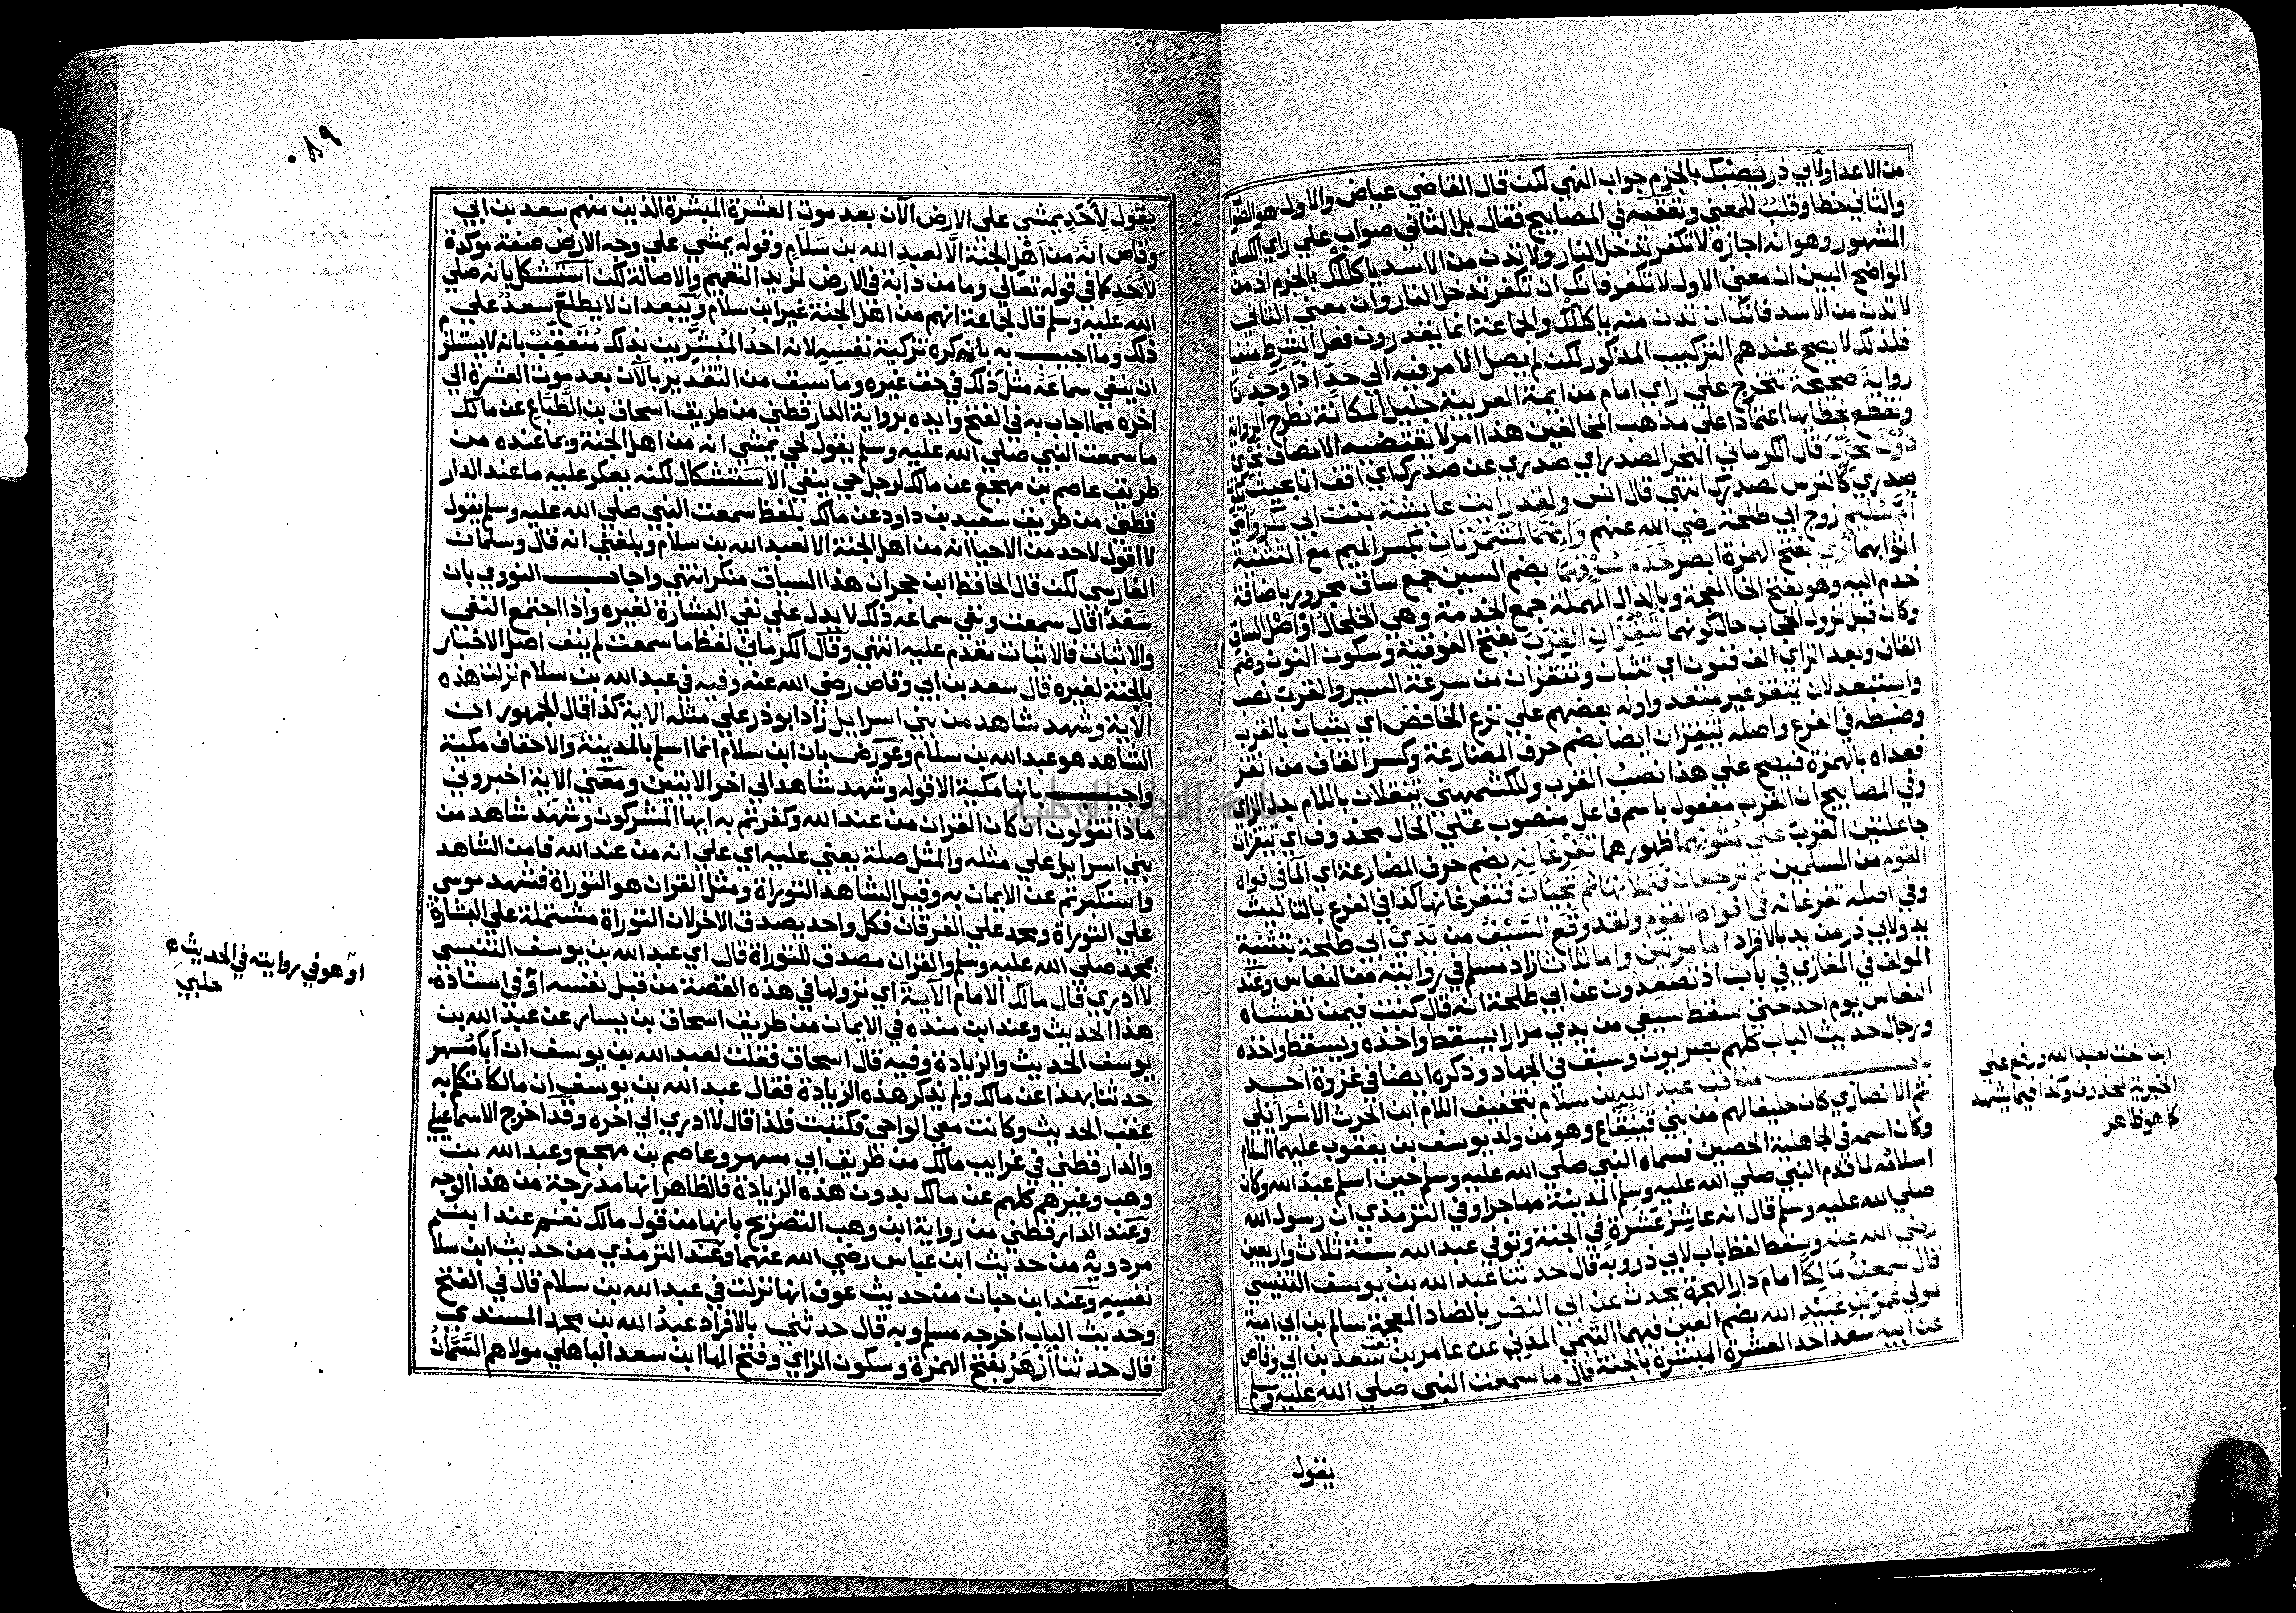 من الاعدا ولابي ذر يصبك بالجزم جواب النهي لكن قال القاضي عياض والاول هو الصواب
والثاني خطا وقلب للمعني وتعقبه في المصابيح فقال بل الثاني صواب علي راي الكساي
المشهور وهو انه اجازه لا تكفر تدخل النار ولا تدن من الاسد ياكلك بالجزم اذ من
الواضح البين ان معني الاول لا تكفر فانك ان تكفر تدخل النار وان معني الثاني
لا تدن من الاسد فانك ان تدن منه ياكلك والجماعة انما يقدرون فعل الشرط منفيا
فلذلك لا يصح عندهم التركيب المذكور لكن لم يصل الامر فيه الي حد اذا وجدنا
رواية صحيحة تتخرج علي راي امام من ايمة العربية جليل المكانة نطرح الرواية
ونقطع بخطايها اعتمادا علي مذهب المخالفين هذا امر لا يقتضيه الانصاف نحري
دون نحرك قال الكرماني النحر الصدر اي صدري عند صدرك اي اقف انا بحيث يكون
صدري كالترس لصدرك انتهي قال انس ولقد رايت عايشة بنت ابي بكر وام
ام سليم زوج ابي طلحة رضي الله عنهم وانهما لمشمرتان بكسر الميم مع التثنية
اثوابهما اري بفتح الهمزة ابصر خدم سوقهما بضم السين جمع ساق مجرور باضافة
خدم اليه وهو بفتح الخا المعجمة وبالدال المهملة جمع الخدمة وهي الخلخال او اصل الساق
وكان قبل نزول الحجاب حال كونهما تنقزان القرب بفتح الفوقية وسكون النون وضم
القاف وبعد الزاي الف فنون اي تثبان وتقفزان من سرعة السير والقرب نصب
واستبعد لان ينقز غير متعد واوله بعضهم علي نزع الخافض اي يثبان بالقرب
وضبطه في الفرع واصله تنقزان ايضا بضم حرف المضارعة وكسر القاف من انقز
فعداه بالهمزة فيصح علي هذا نصب القرب وللكشميهني تنقلان باللام بدل الزاي
وفي المصابيح ان القرب مفعول باسم فاعل منصوب علي الحال محذوف اي تنقزان
جاعلتين القرب علي متونهما ظهورهما تفرغانه بضم حرف المضارعة اي الما في افواه
القوم من المسلمين ثم ترجعان فتملانها ثم تجيان فتفرغانها كذا في الفرع بالتانيث
وفي اصله تفرغانه في افواه القوم ولقد وقع السيف من يدي ابي طلحة بتثنية
يد ولابي ذر من يد بالافراد اما مرتين واما ثلاثا زاد مسلم في روايته من النعاس وعند
المولف في المغازي في باب اذ تصعدون عن ابي طلحة انه قال كنت فيمن تغشاه
النعاس يوم احد حتي سقط سيفي من يدي مرارا يسقط واخذه ويسقط واخذه
ورجال حديث الباب كلهم بصريون وسبق في الجهاد وذكره ايضا في غزوة احد
باب مناقب عبد الله بن سلام بتخفيف اللام ابن الحرث الاسرائلي
ثم الانصاري كان حليفا لهم من بني قينقاع وهو من ولد يوسف بن يعقوب عليهما السلام
وكان اسمه في الجاهلية الحصين فسماه النبي صلي الله عليه وسلم حين اسلم عبد الله وكان
اسلامه لما قدم النبي صلي الله عليه وسلم المدينة مهاجرا وفي الترمذي ان رسول الله
صلي الله عليه وسلم قال انه عاشر عشرة في الجنة وتوفي عبد الله سنة ثلاث واربعين
رضي الله عنه وسقط لفظ باب لابي ذر وبه قال حدثنا عبد الله بن يوسف التنيسي
قال سمعت مالكا امام دار الهجرة يحدث عن ابي النضر بالضاد المعجمة سالم بن ابي امية
مولي عمر بن عبيد الله بضم العين فيهما التيمي المدني عن عامر بن سعد بن ابي وقاص
عن ابيه سعد احد العشرة المبشرة بالجنة قال ما سمعت النبي صلي الله عليه وسلم
يقول
ابن خت لعبد الله ورفع علي
الخبرية لمحذوف وكذا فيما يشهد
كما هو ظاهر
٠٨٩
يقول لاحد يمشي علي الارض الان بعد موت العشرة المبشرة الذين منهم سعد بن ابي
وقاص انه من اهل الجنة الا لعبد الله بن سلام وقوله يمشي علي وجه الارض صفة موكدة
لاحد كما في قوله تعالي وما من دابة في الارض لمزيد التعميم والاصالة لكن استشكل بانه صلي
الله عليه وسلم قال لجماعة انهم من اهل الجنة غير ابن سلام ويبعد ان لا يطلع سعد علي
ذلك وما اجيب به بانه كره تزكية نفسه لانه احد المبشرين بذلك متعقب بانه لا يستلزم
ان ينفي سماعه مثل ذلك في حق غيره وما سبق من التقدير بالان بعد موت العشرة الي
اخره مما اجاب به في الفتح وايده برواية الدارقطني من طريق اسحاق بن الطباع عن مالك
ما سمعت النبي صلي الله عليه وسلم يقول لحي يمشي انه من اهل الجنة وبما عنده من
طريق عاصم بن مهجع عن مالك لرجل حي ينفي الاستشكال لكنه يعكر عليه ما عند الدار
قطني من طريق سعيد بن داود عن مالك بلفظ سمعت النبي صلي الله عليه وسلم يقول
لا اقول لاحد من الاحيا انه من اهل الجنة الا لعبد الله بن سلام وبلغني انه قال وسلمان
الفارسي لكن قال الحافظ ابن حجر ان هذا السياق منكر انتهي واجاب النووي بان
سعدا قال سمعت ونفي سماعه ذلك لا يدل علي نفي البشارة لغيره واذا اجتمع النفي
والاثبات فالاثبات مقدم عليه انتهي وقال الكرماني لفظ ما سمعت لم ينف اصل الاخبار
بالجنة لغيره قال سعد بن ابي وقاص رضي الله عنه وفيه في عبد الله بن سلام نزلت هذه
الاية وشهد شاهد من بني اسرايل زاد ابو ذر علي مثله الاية كذا قال الجمهور ان
الشاهد هو عبد الله بن سلام وعورض بان ابن سلام انما اسلم بالمدينة والاحقاف مكية
واجيب بانها مكية الا قوله وشهد شاهد الي اخر الايتين ومعني الاية اخبروني
ماذا تقولون ان كان القران من عند الله وكفرتم به ايها المشركون وشهد شاهد من
بني اسرايل علي مثله والمثل صلة يعني عليه اي علي انه من عند الله فامن الشاهد
واستكبرتم عن الايمان به وقيل الشاهد التوراة ومثل القران هو التوراة فشهد موسي
علي التوراة ومحمد علي الفرقان فكل واحد يصدق الاخر لان التوراة مشتملة علي البشارة
بمحمد صلي الله عليه وسلم والقران مصدق للتوراة قال اي عبد الله بن يوسف التنيسي
لا ادري قال مالك الامام الاية اي نزولها في هذه القصة من قبل نفسه او في اسناده
هذا الحديث وعند ابن منده في الايمان من طريق اسحاق بن يسار عن عبد الله بن
يوسف الحديث والزيادة وفيه قال اسحاق فقلت لعبد الله بن يوسف ان ابا مسهر
حدثنا بهذا عن مالك ولم يذكر هذه الزيادة فقال عبد الله بن يوسف ان مالكا تكلم به
عقب الحديث وكانت معي الواحي فكتبت فلذا قال لا ادري الي اخره وقد اخرج الاسماعيلي
والدارقطني في غرايب مالك من طريق ابي مسهر وعاصم بن مهجع وعبد الله بن
وهب وغيرهم كلهم عن مالك بدون هذه الزيادة فالظاهر انها مدرجة من هذا الوجه
وعند الدارقطني من رواية ابن وهب التصريح بانها من قول مالك نعم عند ابن
مردويه من حديث ابن عباس رضي الله عنهما وعند الترمذي من حديث ابن سلام
نفسه وعند ابن حبان من حديث عوف انها نزلت في عبد الله بن سلام قال في الفتح
وحديث الباب اخرجه مسلم وبه قال حدثني بالافراد عبد الله بن محمد المسندي
قال حدثنا ازهر بفتح الهمزة وسكون الزاي وفتح الها ابن سعد الباهلي مولاهم السمان
او هو في روايته في الحديث ه
حلبي